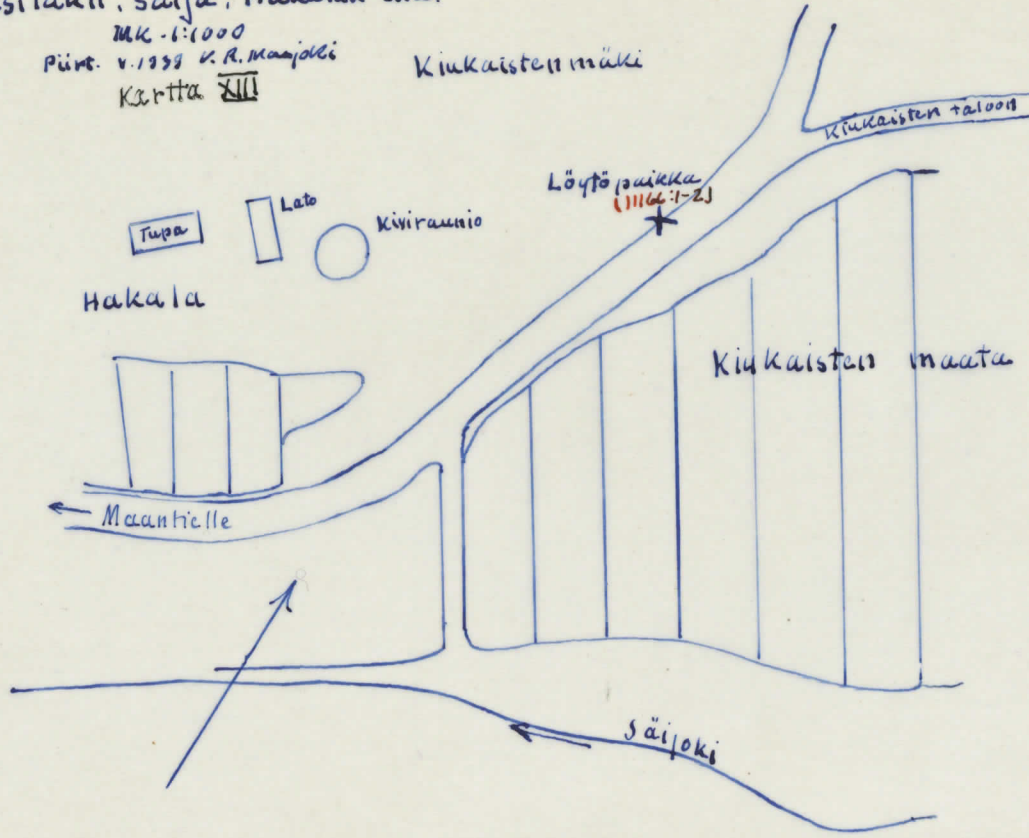 Säijä,
MK - 1:1000
Piirt. v. 1939 V. R. Maajoki
Kartta XIII
Kiukaistenmäki
Kiukaisten taloon
Löytöpaikka
Lato
Tupa
Kiviraunio
Hakala
Kiukaisten maata
Maantielle
Säijoki